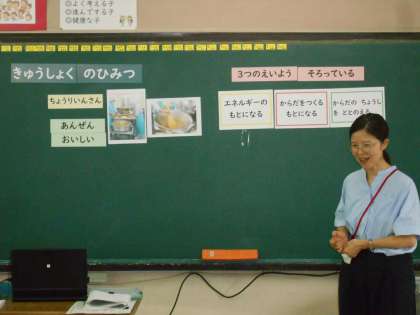 ◎よく考える子
◎進んでする子
◎健康な子
きゅうしょく のひみつ
ちょうりいんさん
あんぜん
おいしい
3つのえいよう そろっている
エネルギーの
もとになる
からだをつくる
もとになる
からだの ちょうし
を ととのえる